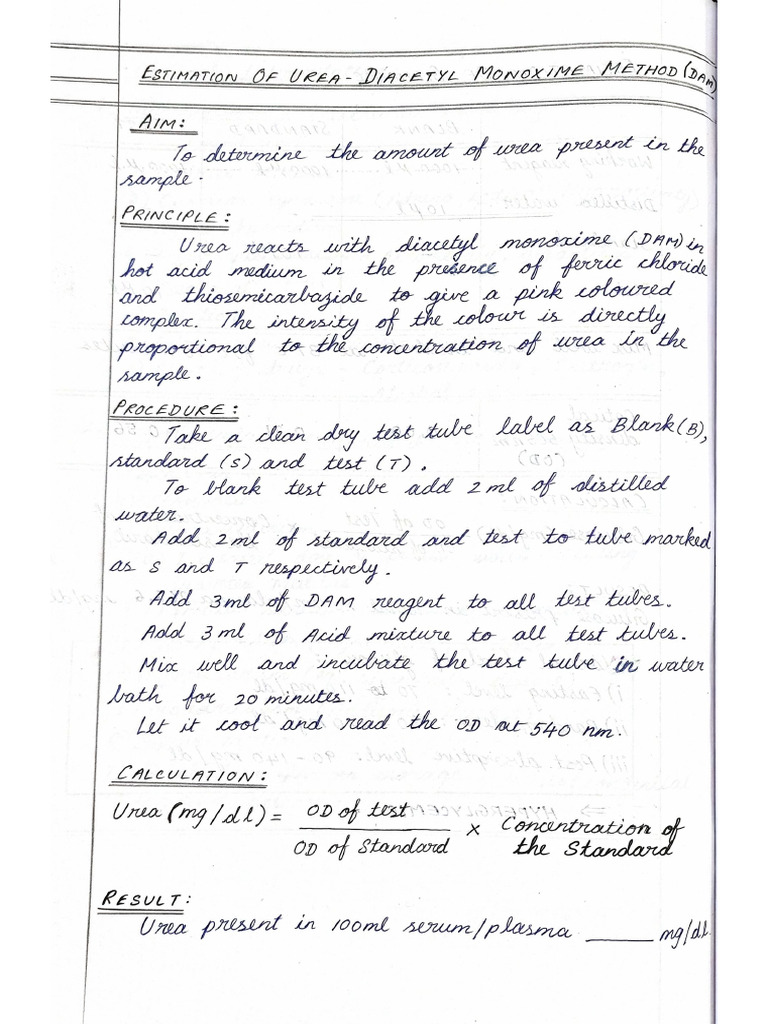 ESTIMATION OF UREA - DIACETYL MONOXIME METHOD (DAM)
AIM:
To determine the amount of urea present in the
sample.
PRINCIPLE:
Urea reacts with diacetyl monoxime (DAM) in
hot acid medium in the presence of ferric chloride
and thiosemicarbazide to give a pink coloured
complex. The intensity of the colour is directly
proportional to the concentration of urea in the
sample.
PROCEDURE:
Take a clean dry test tube label as Blank (B),
standard (S) and test (T).
To blank test tube add 2 ml of distilled
water.
Add 2 ml of standard and test to tube marked
as S and T respectively.
Add 3 ml of DAM reagent to all test tubes.
Add 3 ml of Acid mixture to all test tubes.
Mix well and incubate the test tube in water
bath for 20 minutes.
Let it cool and read the OD at 540 nm.
CALCULATION:
Urea (mg/dl) = OD of test / OD of Standard × Concentration of
the Standard
RESULT:
Urea present in 100ml serum/plasma ______ mg/dl.